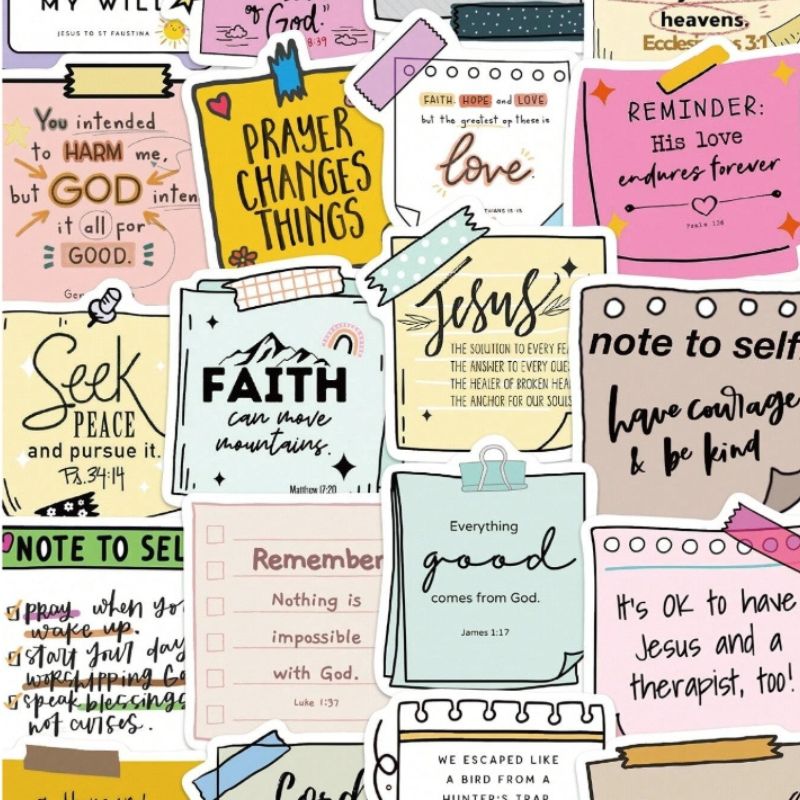 MY WILL
JESUS TO ST FAUSTINA
of God."
8:39
heavens.
Ecclesiastes 3:1
You intended
to HARM me,
but GOD inten
it all for
GOOD.
Gen
PRAYER
CHANGES
THINGS
FAITH, HOPE, and LOVE
but the greatest op these is
love.
THIANS 13:13
REMINDER:
His love
endures forever
Psalm 136
Seek
PEACE
and pursue it.
Ps.34:14
FAITH
can move
mountains.
Matthew 17:20
Jesus
THE SOLUTION TO EVERY
THE ANSWER TO EVERY
THE HEALER OF BROKEN
THE ANCHOR FOR OUR SOULS
note to self:
have courage
& be kind
NOTE TO SEL
pray when yo
wake up.
start your day
worshipping Go
speak blessings
not curses.
Remember
Nothing is
impossible
with God.
Luke 1:37
Everything
good
comes from God.
James 1:17
It's OK to have
Jesus and a
therapist, too!
Lord
WE ESCAPED LIKE
A BIRD FROM A
HUNTER'S TRAP